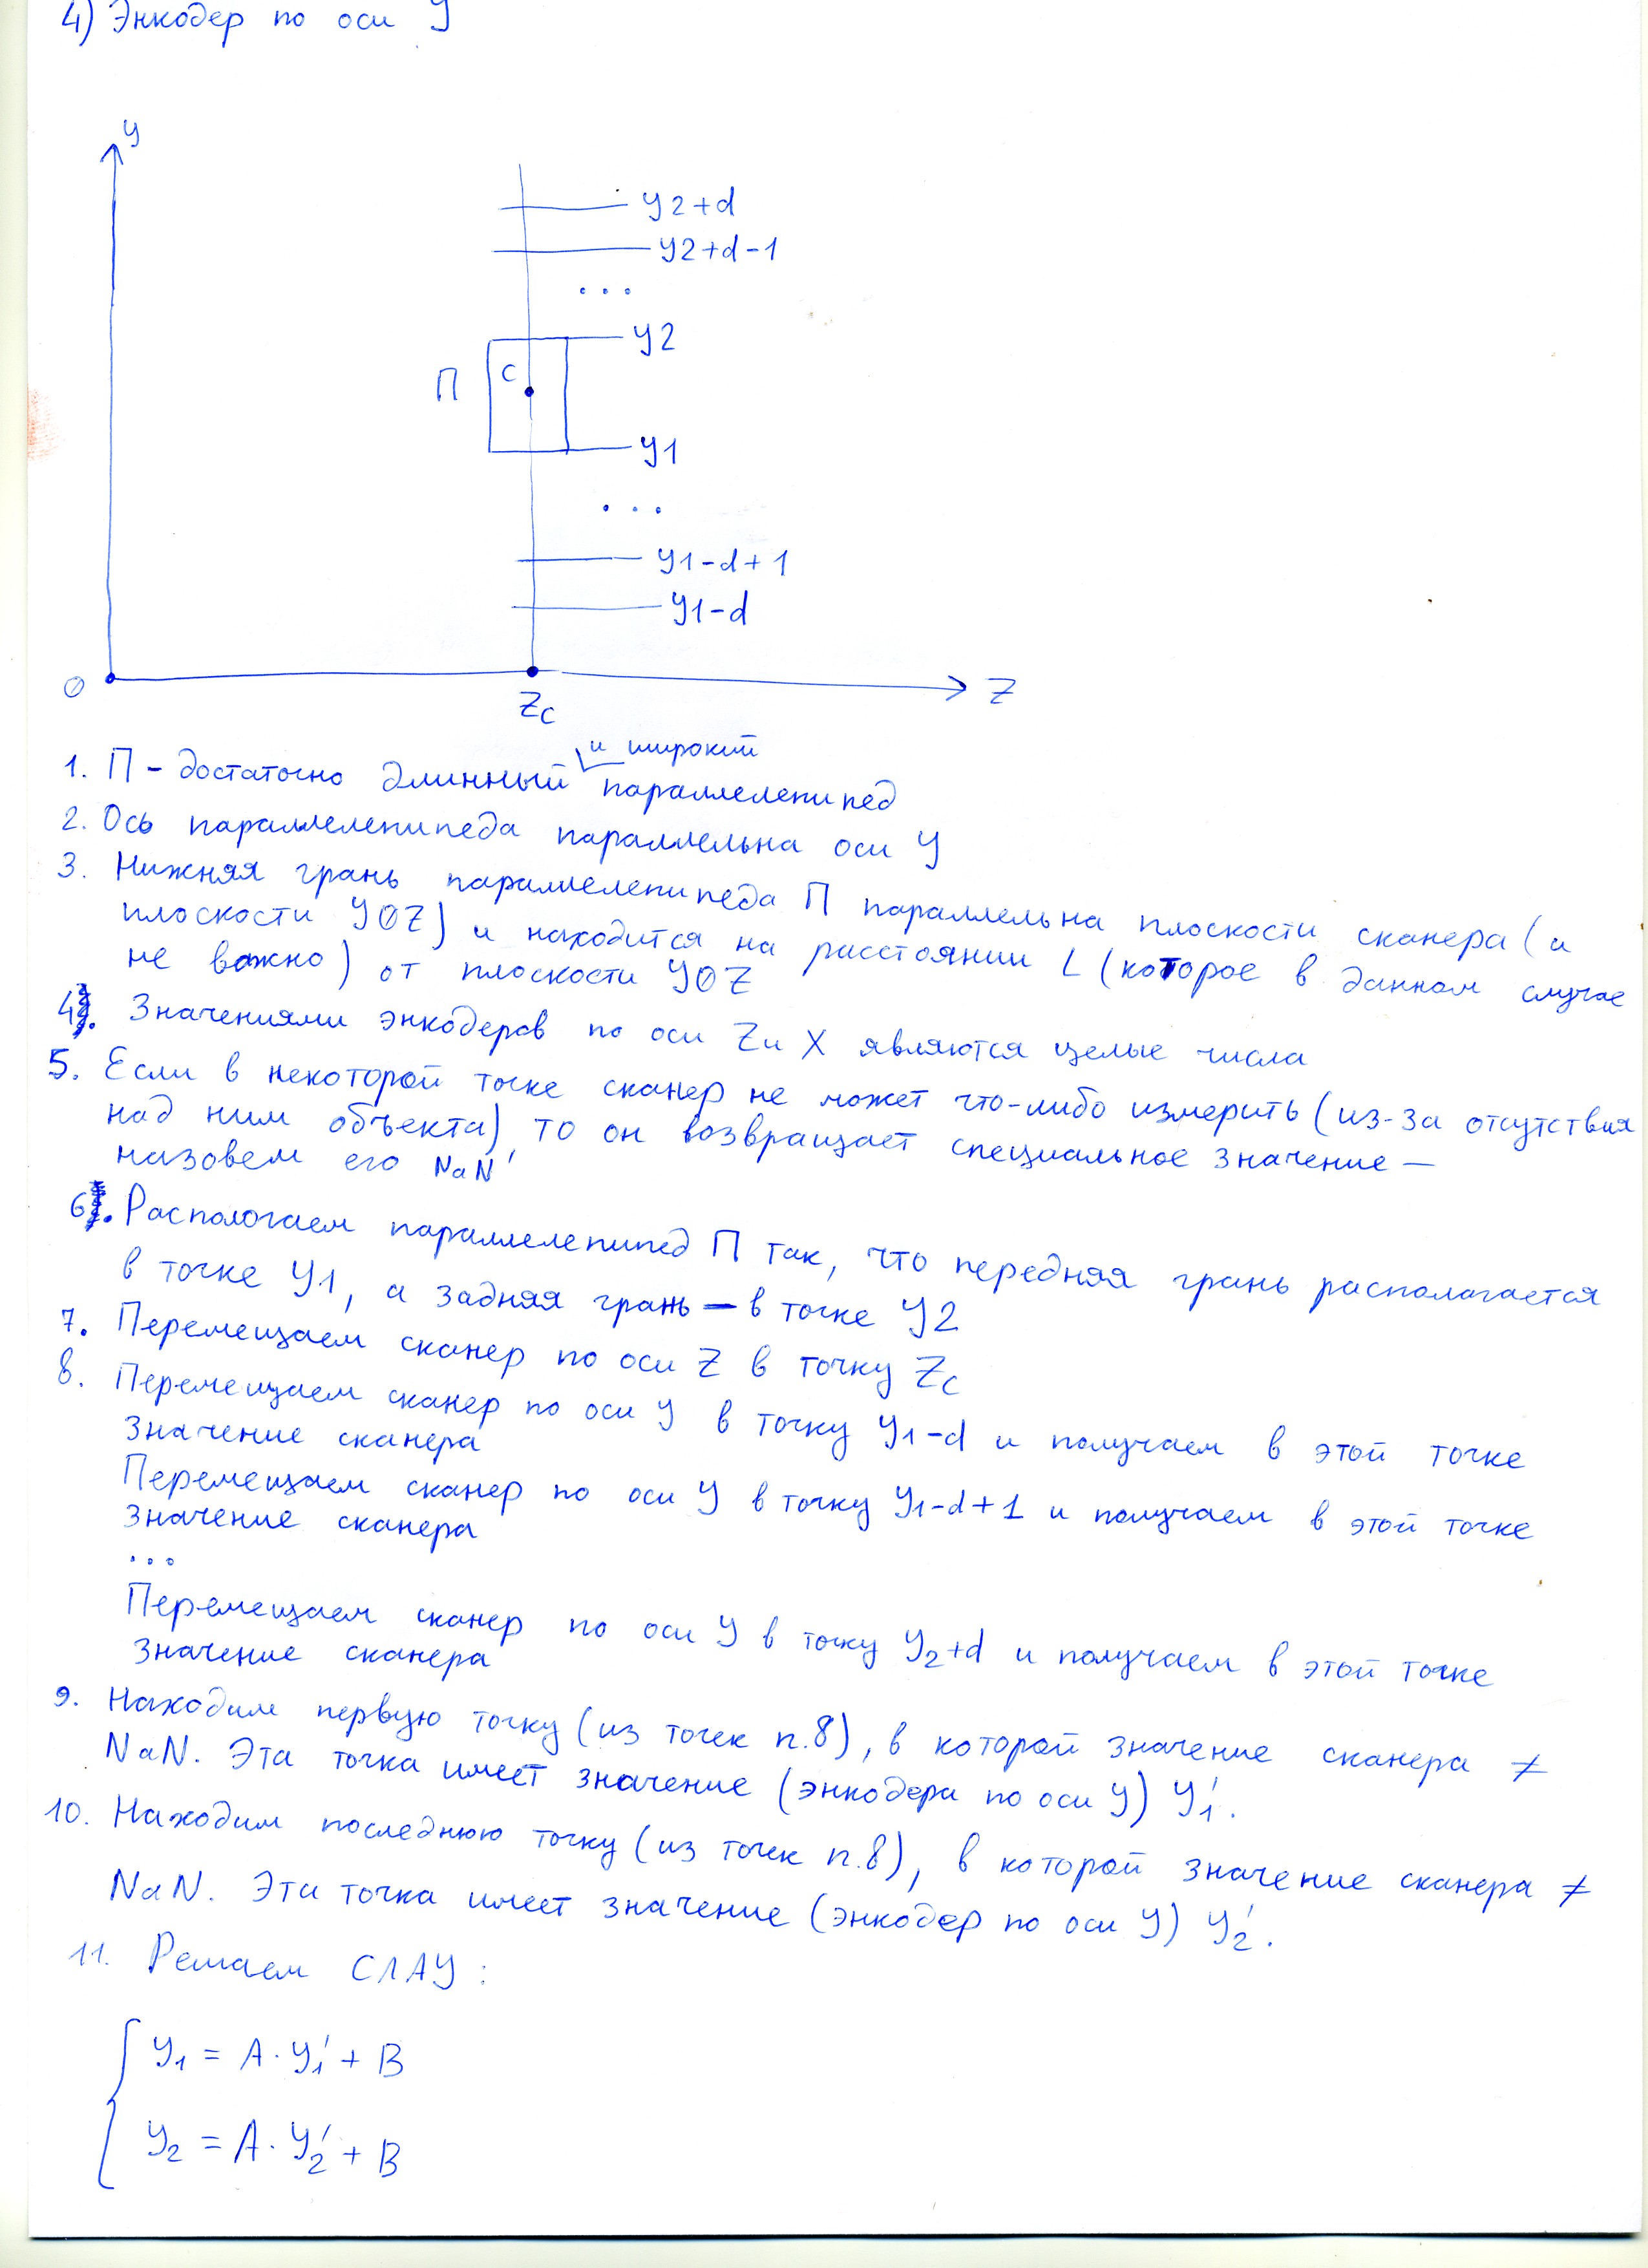 4) Энкодер по оси У
У
У2+d
У2+d-1
...
У2
П
С
У1
...
У1-d+1
У1-d
О
Zс
Z
и широкий
1. П - достаточно длинный параллелепипед
2. Ось параллелепипеда параллельна оси У
3. Нижняя грань параллелепипеда П параллельна плоскости сканера (и
плоскости УОZ) и находится на расстоянии L (которое в данном случае
не важно) от плоскости УОZ
4. Значениями энкодеров по оси Z и X являются целые числа
5. Если в некоторой точке сканер не может что-либо измерить (из-за отсутствия
над ним объекта), то он возвращает специальное значение —
назовем его NaN
6. Распологаем параллелепипед П так, что передняя грань располагается
в точке У1, а задняя грань — в точке У2
7. Перемещаем сканер по оси Z в точку Zс
8. Перемещаем сканер по оси У в точку У1-d и получаем в этой точке
значение сканера
Перемещаем сканер по оси У в точку У1-d+1 и получаем в этой точке
значение сканера
...
Перемещаем сканер по оси У в точку У2+d и получаем в этой точке
значение сканера
9. Находим первую точку (из точек п.8), в которой значение сканера ≠
NaN. Эта точка имеет значение (энкодера по оси У) У1'.
10. Находим последнюю точку (из точек п.8), в которой значение сканера ≠
NaN. Эта точка имеет значение (энкодер по оси У) У2'.
11. Решаем СЛАУ:
У1 = A · У1' + B
У2 = A · У2' + B